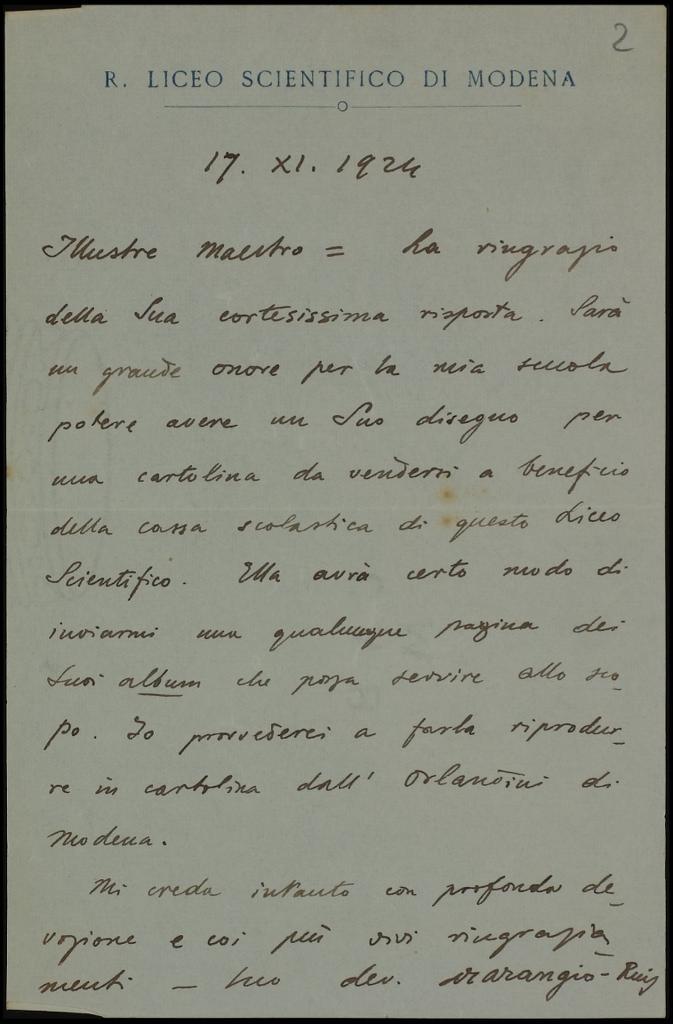 2
R. LICEO SCIENTIFICO DI MODENA
17. XI. 1924
Illustre Maestro = La ringrazio
della Sua cortesissima risposta. Sarà
un grande onore per la mia scuola
potere avere un Suo disegno per
una cartolina da vendersi a beneficio
della cassa scolastica di questo Liceo
Scientifico. Ella avrà certo modo di
inviarmi una qualunque pagina dei
Suoi album che possa servire allo sco_
po. Io provvederei a farla riprodur_
re in cartolina dall' Orlandini di
Modena.
Mi creda intanto con profonda de_
vozione e coi più vivi ringrazia_
menti _ Suo dev. Marangio-Ruiz